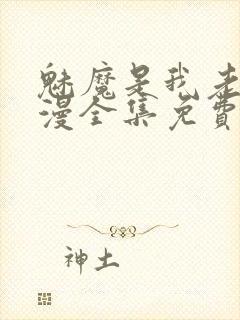 魅魔是我老
漫全集免费
神土